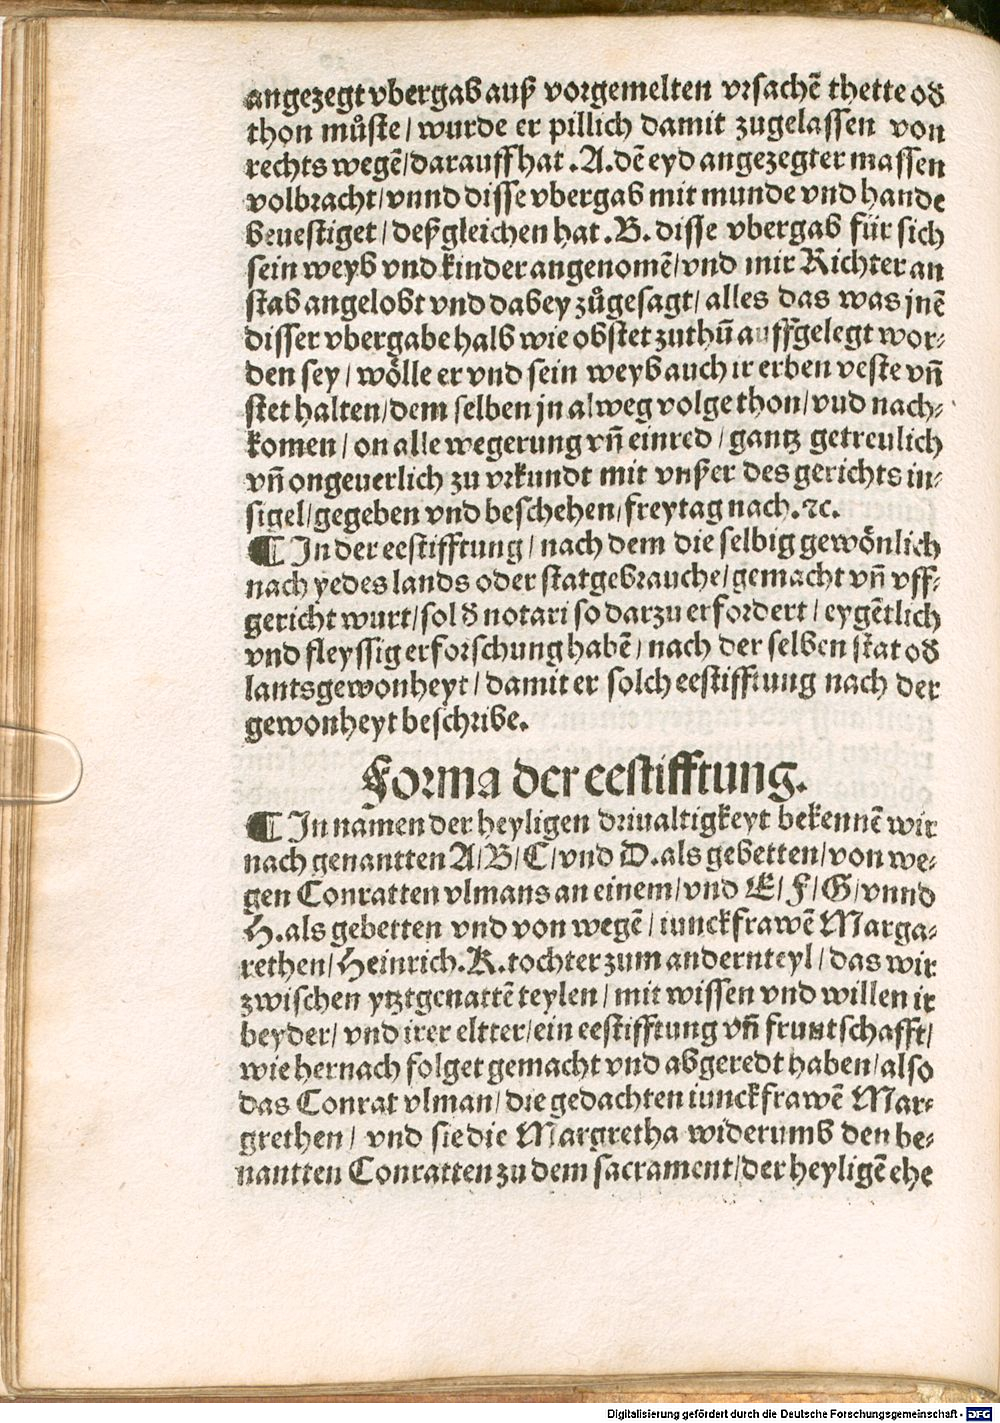 angezegt vbergab auß vorgemelten vrsachē thette oď
thon můste / wurde er pillich damit zugelassen von
rechts wegē / darauff hat .A. dē eyd angezegter massen
volbracht / vnnd disse vbergab mit munde vnd hande
beuestiget / deßgleichen hat .B. disse vbergab für sich
sein weyb vnd kinder angenomē / vnd mir Richter an
stab angelobt vnd dabey zůgesagt / alles das was jnē
disser vbergabe halb wie obstet zuthū auffgelegt wor-
den sey / wőlle er vnd sein weyb auch ir erben veste vñ
stet halten / dem selben jn alweg volge thon / vud nach-
komen / on alle wegerung vñ einred / gantz getreulich
vñ ongeuerlich zu vrkundt mit vnßer des gerichts in-
sigel / gegeben vnd beschehen / freytag nach. ⁊c.
¶ In der eestifftung / nach dem die selbig gewőnlich
nach yedes lands oder statgebrauche / gemacht vñ vff-
gericht wurt / sol ď notari so darzu erfordert / eygētlich
vnd fleyssig erforschung habē / nach der selben stat oď
lantsgewonheyt / damit er solch eestifftung nach der
gewonheyt beschribe.
Forma der eestifftung.
¶ In namen der heyligen driualtigkeyt bekennē wir
nach genantten A / B / C / vnd D. als gebetten / von we-
gen Conratten vlmans an einem / vnd E / F / G / vnnd
H. als gebetten vnd von wegē / iunckfrawē Marga-
rethen / Heinrich. K. tochter zum andernteyl / das wir
zwischen ytztgenattē teylen / mit wissen vnd willen ir
beyder / vnd irer eltter / ein eestifftung vñ fruntschafft /
wie hernach folget gemacht vnd abgeredt haben / also
das Conrat vlman / die gedachten iunckfrawē Mar-
grethen / vnd sie die Margretha widerumb den be-
nantten Conratten zu dem sacrament / der heyligē ehe
Digitalisierung gefördert durch die Deutsche Forschungsgemeinschaft - DFG